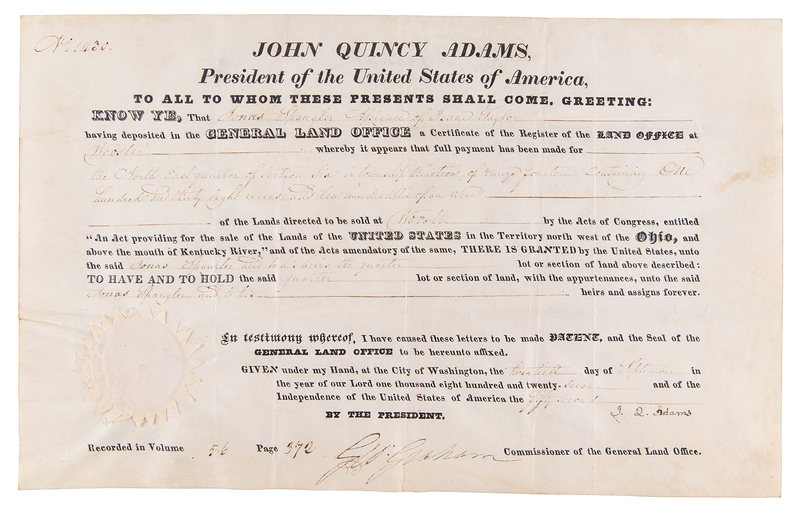 No. 1430.
JOHN QUINCY ADAMS,
President of the United States of America,
TO ALL TO WHOM THESE PRESENTS SHALL COME, GREETING:
KNOW YE, That Jonas Spangler Assignee of Isaac Taylor
having deposited in the GENERAL LAND OFFICE a Certificate of the Register of the LAND OFFICE at
Wooster whereby it appears that full payment has been made for
the North East quarter of Section Six in township Nineteen of range fourteen Containing One
hundred and thirty eight acres and hundredths of an acre
of the Lands directed to be sold at Wooster by the Acts of Congress, entitled
"An Act providing for the sale of the Lands of the UNITED STATES in the Territory north west of the Ohio, and
above the mouth of Kentucky River," and of the Acts amendatory of the same, THERE IS GRANTED by the United States, unto
the said Jonas Spangler and to his heirs the quarter lot or section of land above described:
TO HAVE AND TO HOLD the said quarter lot or section of land, with the appurtenances, unto the said
Jonas Spangler and to his heirs and assigns forever.
In testimony whereof, I have caused these letters to be made PATENT, and the Seal of the
GENERAL LAND OFFICE to be hereunto affixed.
GIVEN under my Hand, at the City of Washington, the twentieth day of September in
the year of our Lord one thousand eight hundred and twenty-seven and of the
Independence of the United States of America the fifty second
J. Q. Adams
BY THE PRESIDENT,
Recorded in Volume 56 Page 372 Geo. Graham Commissioner of the General Land Office.